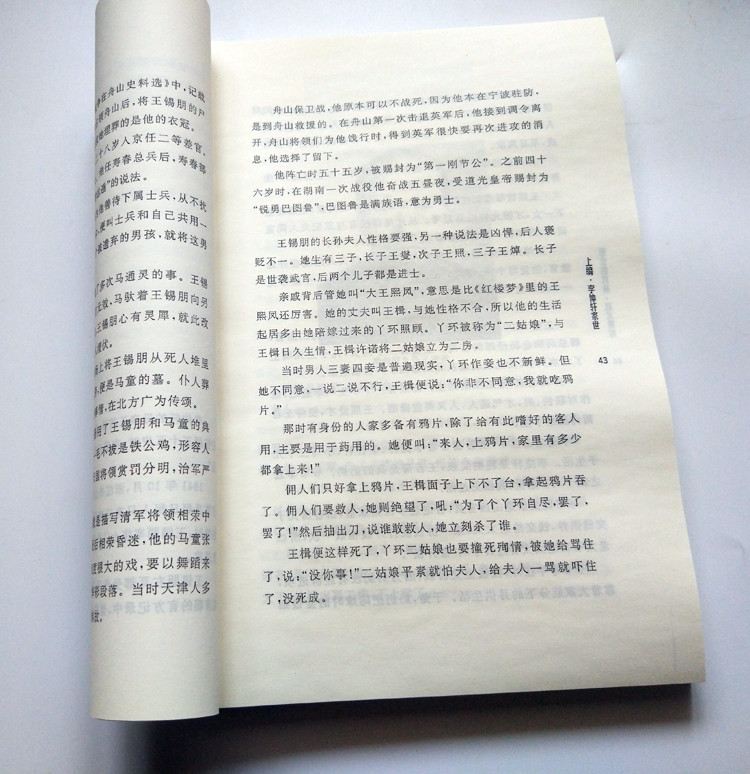 在舟山史料选》中,记载
舟山后,将王锡朋的尸
埋葬的是他的衣冠。
十八岁入京任二等差官。
任寿春总兵后,寿春部
”的说法。
善待下属士兵,从不扰
便叫士兵和自己共用一
被遗弃的男孩,就将这男
多次马通灵的事。王锡
无效,马驮着王锡朋向另
王锡朋心有灵犀,就此改
伏。
上将王锡朋从死人堆里
便是马童的墓。仆人葬
情,在北方广为传颂。
用了王锡朋和马童的典
毛不拔是铁公鸡,形容人
将领赏罚分明,治军严
是描写清军将领相荣中
相荣昏迷,他的马童张
很大的戏,要以舞蹈来
段落。当时天津人多
故。
舟山保卫战,他原本可以不战死,因为他本在宁波驻防,
是到舟山救援的。在舟山第一次击退英军后,他接到调令离
开,舟山将领们为他饯行时,得到英军很快要再次进攻的消
息,他选择了留下。
他阵亡时五十五岁,被赐封为“第一刚节公”。之前四十
六岁时,在湖南一次战役他奋战五昼夜,受道光皇帝赐封为
“锐勇巴图鲁”,巴图鲁是满族语,意为勇士。
王锡朋的长孙夫人性格要强,另一种说法是凶悍,后人褒
贬不一。她生有三子,长子王燮,次子王照,三子王焯。长子
是世袭武官,后两个儿子都是进士。
亲戚背后管她叫“大王熙凤”,意思是比《红楼梦》里的王
熙凤还厉害。她的丈夫叫王楫,与她性格不合,所以他的生活
起居多由她陪嫁过来的丫环照顾。丫环被称为“二姑娘”,与
王楫日久生情,王楫许诺将二姑娘立为二房。
当时男人三妻四妾是普遍现实,丫环作妾也不新鲜。但
她不同意,一说二说不行,王楫便说:“你非不同意,我就吃鸦
片。”
那时有身份的人家多备有鸦片,除了给有此嗜好的客人
用,主要是用于药用的。她便叫:“来人,上鸦片,家里有多少
都拿上来!”
佣人们只好拿上鸦片,王楫面子上下不了台,拿起鸦片吞
了。佣人们要救人,她则绝望了,吼:“为了个丫环自尽,罢了、
罢了!”然后抽出刀,说谁敢救人,她立刻杀了谁。
王楫便这样死了,丫环二姑娘也要撞死殉情,被她给骂住
了,说:“没你事!”二姑娘平素就怕夫人,给夫人一骂就吓住
了,没死成。
上编·李仲轩家世
43